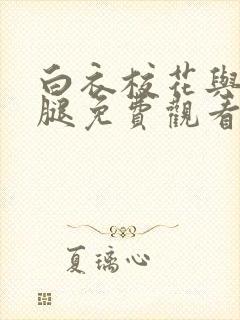 白衣校花與
腿免費觀看
夏璃心